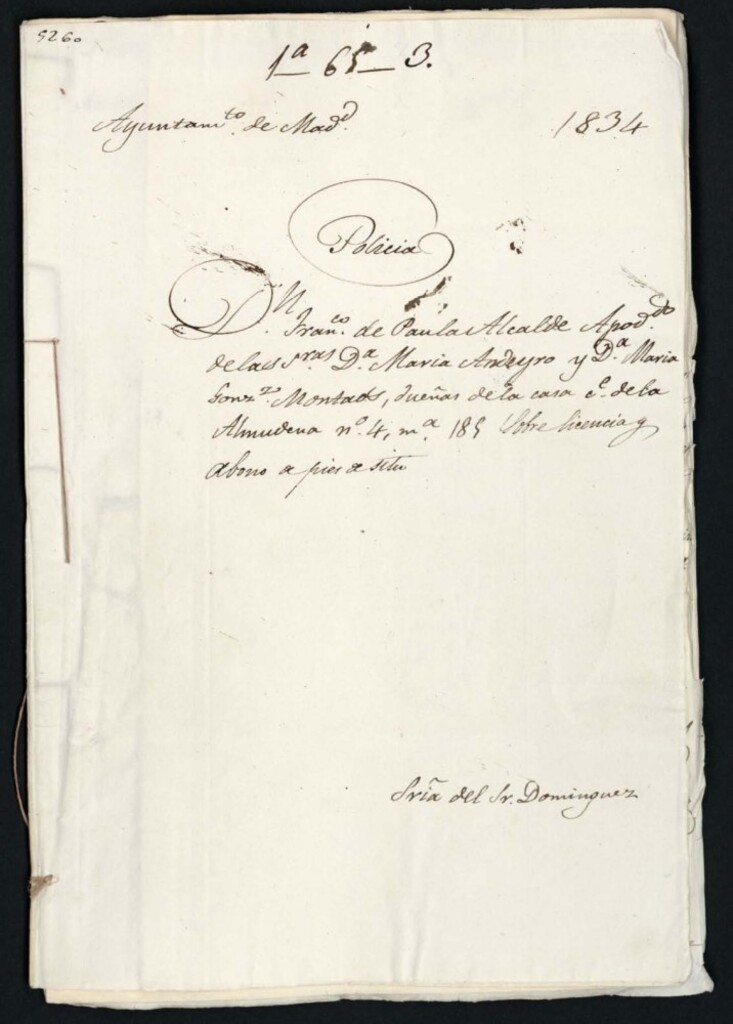 5260
1ª 65 3.
Ayuntam.to de Mad.d 1834
Policia
D.n Fran.co de Paula Alcalde Apod.do
de las S.ras D.ª Maria Andeyro y D.ª Maria
Gonz.z Montaos, dueñas de la casa c.e de la
Almudena n.o 4, m.ª 185 Sobre licencia y
abono de pies de sitio
Sría del Sr. Dominguez